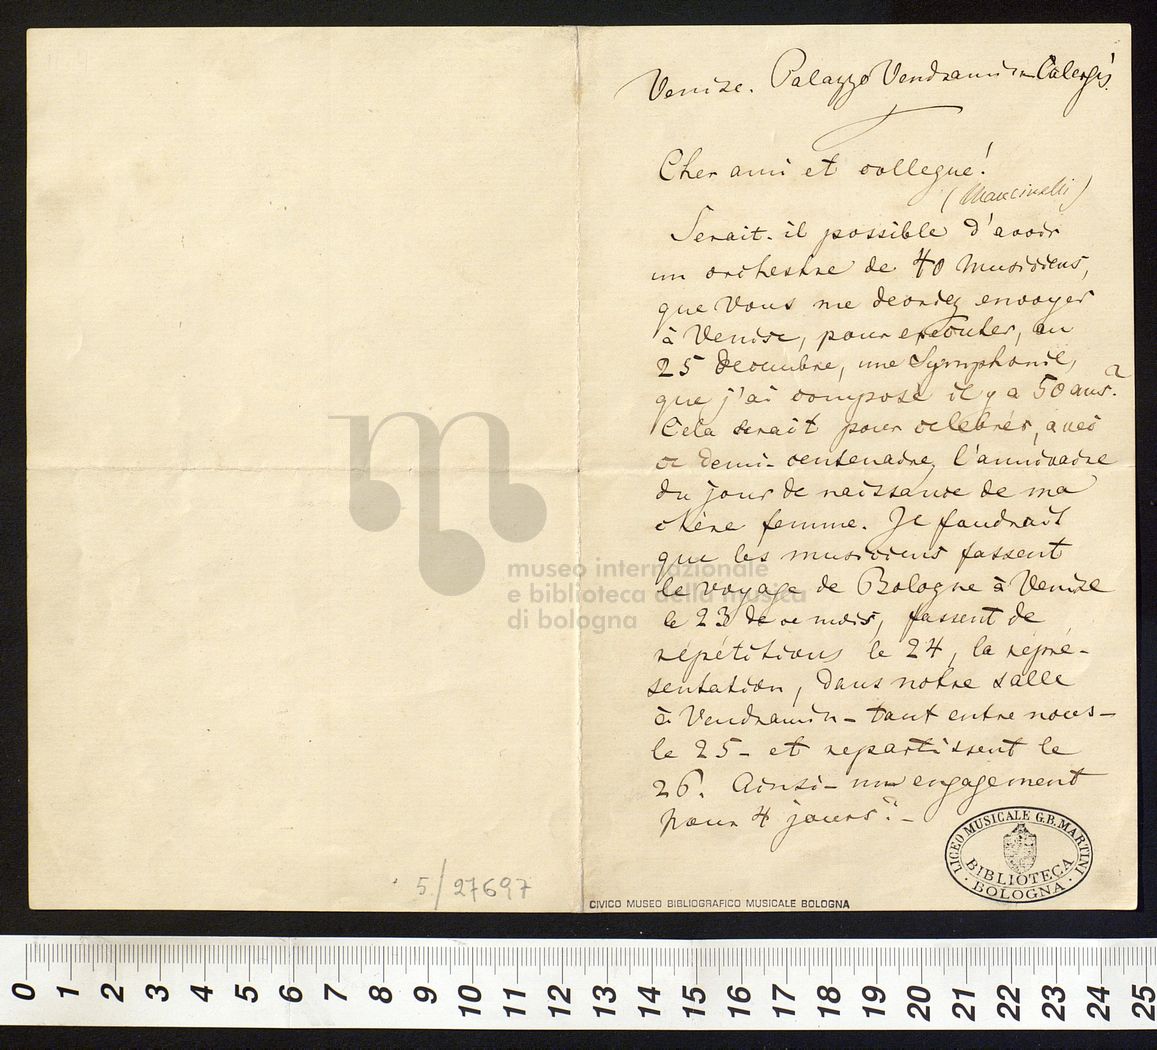 Venise. Palazzo Vendramin-Calergis.
Cher ami et collegue!
(Mancinelli)
Serait-il possible d'avoir
un orchestre de 40 musiciens,
que Vous me devriez envoyer
à Venise, pour executer, au
25 decembre, une Symphonie,
que j'ai composé il y a 50 ans?
Cela serait pour celebrer, avec
ce demi-centenaire, l'annivaire
du jour de naissance de ma
chère femme. Il faudrait
que les musiciens fassent
le voyage de Bologne à Venise
le 23 de ce mois, fassent de
répétitions le 24, la repré-
sentation, dans notre salle
à Vendramin - tout entre nous -
le 25 - et repartissent le
26. Ainsi - un engagement
pour 4 jours? -
museo internazionale
e biblioteca della musica
di bologna
5./27697
CIVICO MUSEO BIBLIOGRAFICO MUSICALE BOLOGNA
LICEO MUSICALE G.B. MARTINI
BIBLIOTECA
· BOLOGNA ·
0 1 2 3 4 5 6 7 8 9 10 11 12 13 14 15 16 17 18 19 20 21 22 23 24 25